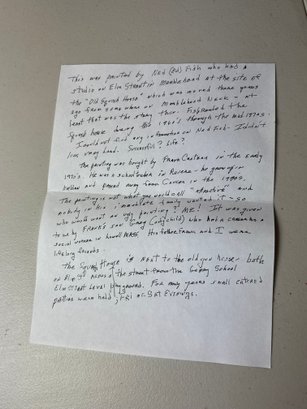 This was painted by Ned (Ed) Fish who had a
studio on Elm Street in Marblehead at the site of
the "Old Squash House" which was moved there years
ago from some where on Marblehead Neck - at
least that was the story then. Fish rented the
Squash house during the 1960's through the mid 1970s.
I could not find any information on Ned Fish. I didn't
look very hard. Successful? Life?
The painting was bought by Frank in the early
1970's. He was a school in Revere - he grew up in
and passed away from Cancer in the 1990's.
The painting is not what you would call "attractive" and
nobody in his immediate family wanted it - so
who would want an ugly painting? ME! It was given
to me by FRANK's son Gary (only child) who had a career as a
social worker in Lowell MASS. His father Frank and I were
lifelong friends.
The Squash House is next to the old gun house - both
on Elm St. across the street from the Gerry School
Elm Street level. For many years small concerts and
parties were held, FRI or SAT Evenings.